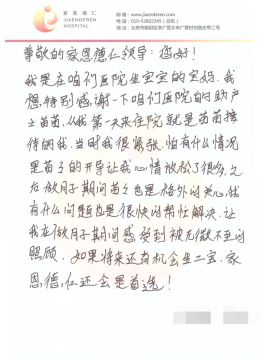 家恩德仁
JIAENDEREN
HOSPITAL
网址：www.jiaenderen.com
电话：010-52802345（总机）
尊敬的家恩德仁领导：您好！
我是在咱们医院生宝宝的宝妈，我
想特别感谢一下咱们医院的助产
士苗苗，从我第一天来住院就是苗苗接
待的我。当时我很紧张，怕有什么情况
是苗苗的开导让我心情放松了很多，之
后做月子期间苗苗也是格外的关心，我
有什么问题也是很快的帮忙解决，让
我在做月子期间感受到被无微不至的
照顾。如果将来还有机会生二宝，家
恩德仁还会是首选！